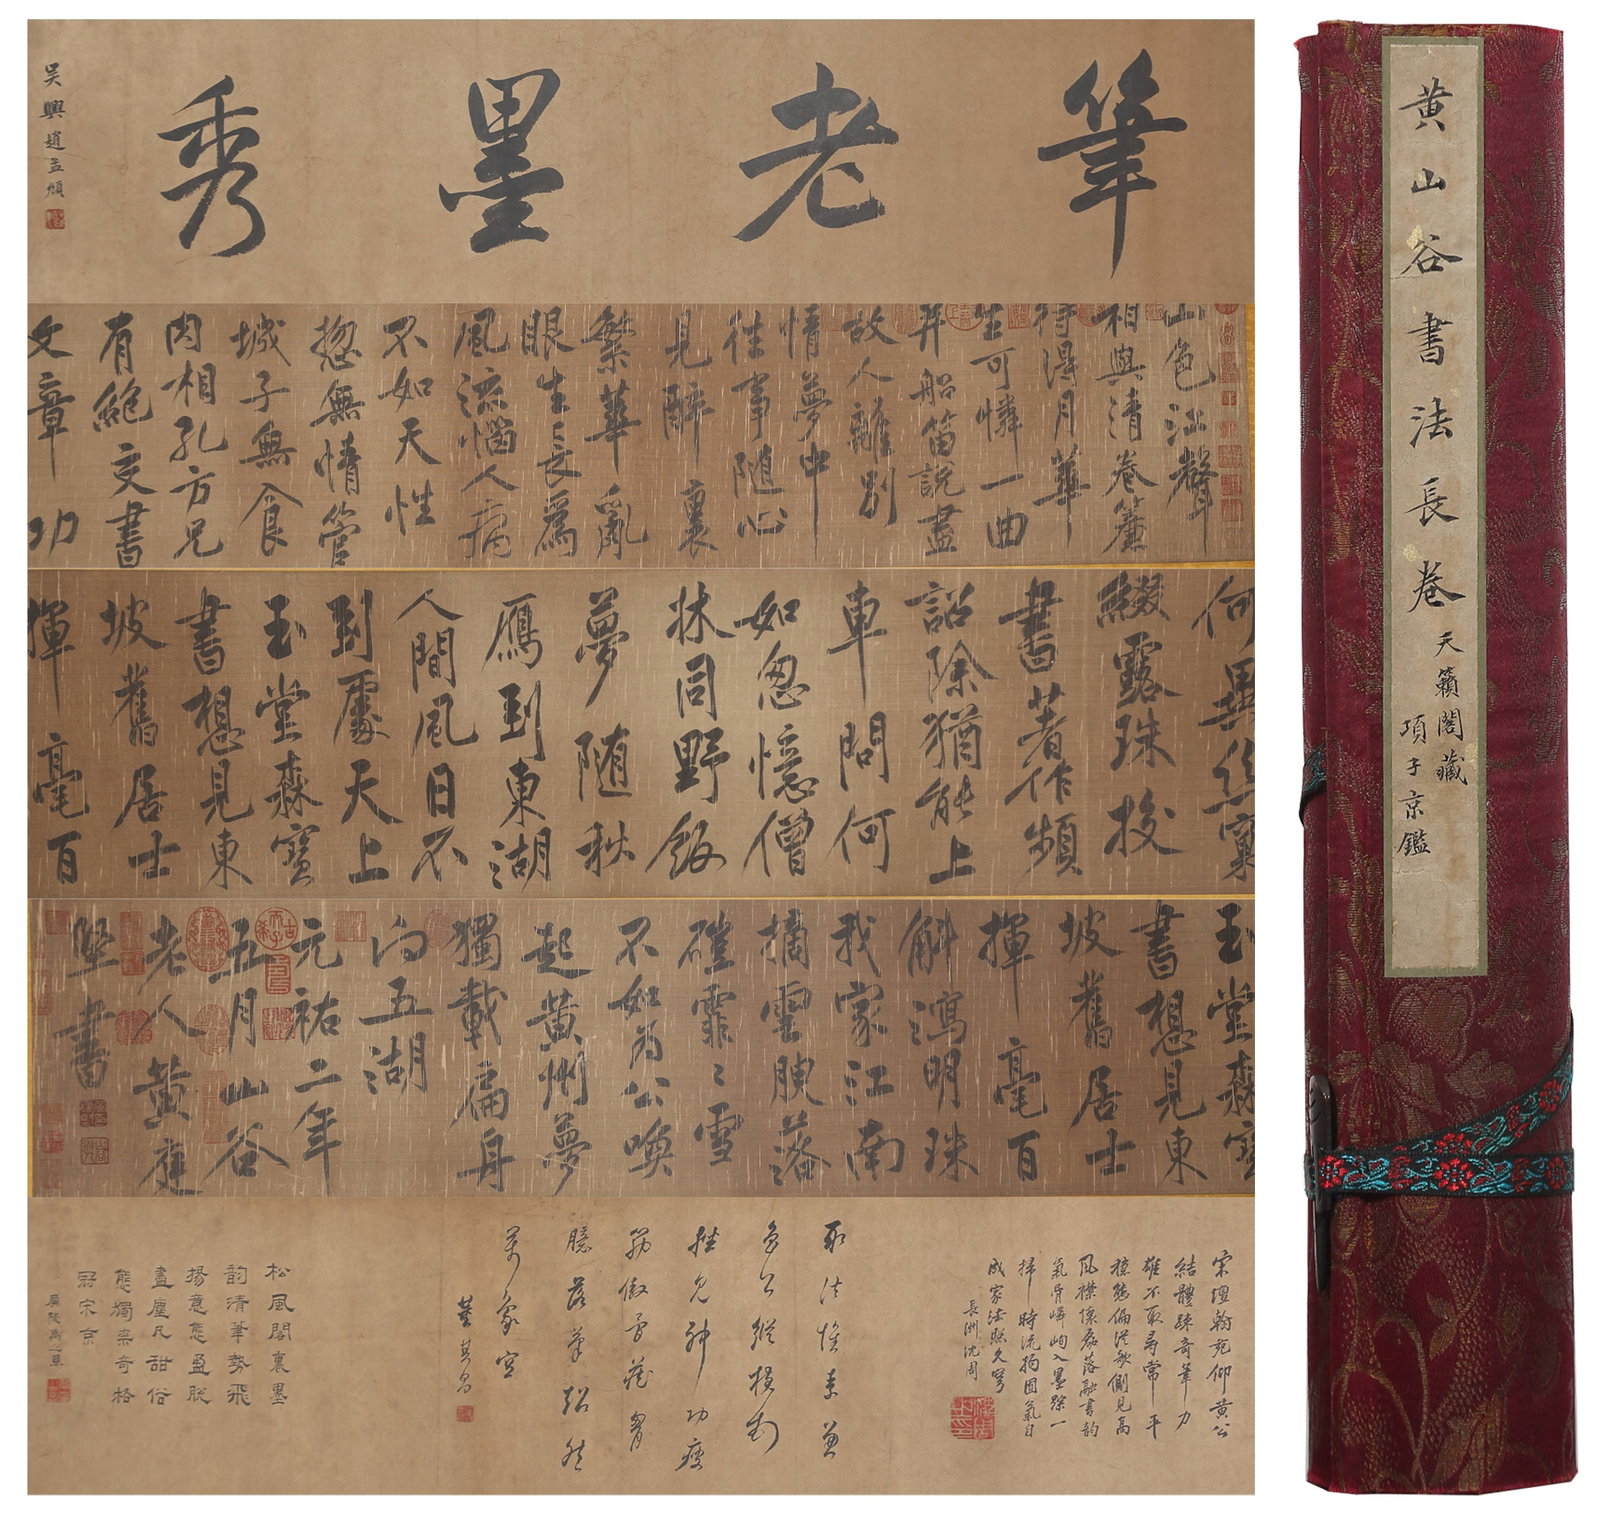 筆老墨秀
吳興趙孟頫
山色江聲
相與清卷簾
待得月華
生可憐一曲
并船笛說盡
故人離別
情夢中
往事隨心
見醉裏
繁華亂
眼生長爲
風流惱人病
不如天性
揔無情管
城子無食
肉相孔方兄
有絕交書
文章功
何異絲窠
綴露珠挍
書著作頻
詔除猶能上
車問何
如忽憶僧
牀同野飯
夢隨秋
雁到東湖
人間風日不
到處天上
玉堂森寶
書想見東
坡舊居士
揮毫百
玉堂森寶
書想見東
坡舊居士
揮毫百
斛瀉明珠
我家江南
摘雲腴落
磑霏〻雪
不如為公喚
起黃州夢
獨載扁舟
向五湖
元祐二年
五月山谷
老人黃庭
堅書
宋壇翰苑仰黃公
結體疎奇筆力
雄不取尋常平
穩態偏從欹側見高
風襟懷磊落融書韵
氣骨嶙峋入墨蹤一
掃時流拘固氣自
成家法照久穹
長洲沈周
取法懷素兼
魯公縱橫
挫見神功瘦
筋傲骨藏胸
臆落筆超然
萬象空
董其昌
松風閣裏墨
韵清筆勢飛
揚意態盈脫
盡塵凡甜俗
態獨樂奇格
冠宋京
廣陵禹之鼎
黄山谷書法長卷
天籟閣藏
項子京鑑